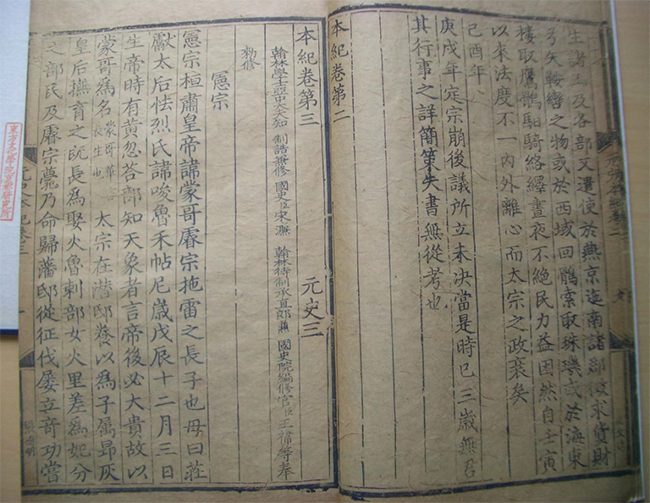 生諸王及各部又遣使於燕京迤南諸郡徵求貨財
弓矢鞍轡之物或於西域回鶻索取珠璣或於海東
樓取鷹鶻馹騎絡繹晝夜不絕民力益困然自壬寅
以來法度不一內外離心而太宗之政衰矣
己酉年
庚戌年定宗崩後議所立未決當是時已三歲無君
其行事之詳簡策失書無從考也
本紀卷第二
本紀卷第三 元史三
翰林學士亞中大夫知 制誥兼修 國史臣宋濂 翰林待制承直郎兼 國史院編修官臣王禕等奉
勅修
憲宗
憲宗桓肅皇帝諱蒙哥睿宗拖雷之長子也母曰莊
獻太后怯烈氏諱唆魯禾帖尼歲戊辰十二月三日
生帝時有黃忽荅部知天象者言帝後必大貴故以
蒙哥為名蒙哥華言長生也 太宗在潛邸養以為子屬昂灰
皇后撫育之既長為娶火魯剌部女火里差為妃分
之部民及睿宗薨乃命歸藩邸從征伐屢立奇功嘗